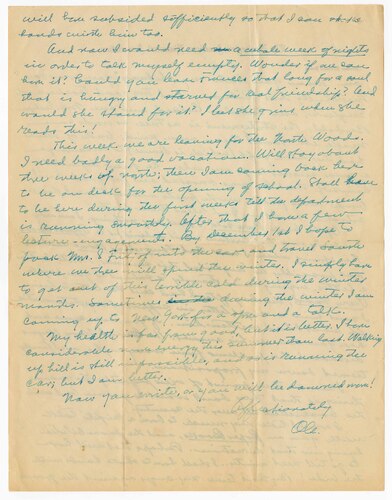 will have subsided sufficiently so that I can shake
hands with him too.
And now I would need a whole week of nights
in order to talk myself empty. Wonder if we can
have it? Could you leave Frances that long for a soul
that is hungry and starved for real friendship? And
would she stand for it? I bet she grins when she
reads this!
This week we are leaving for the North Woods.
I need badly a good vacation. Will stay about
three weeks up north; then I am coming back here
to be on deck for the opening of school. Shall have
to be here during the first weeks till the department
is running smoothly. After that I have a few
lecture engagements. By December 1st I hope to
pack Mrs. R. and of into the car and travel south
where we three will spend the winter. I simply have
to get out of this terrible cold during the winter
months. Sometimes during the winter I am
coming up to New York for a spree and a talk.
My health is far from good, but it is better. I have
considerable more this summer than last. Walking
up hill is still impossible, and so is running the
car; but I am better.
Now you write, or you will be damned more!
Affectionately
Ole.